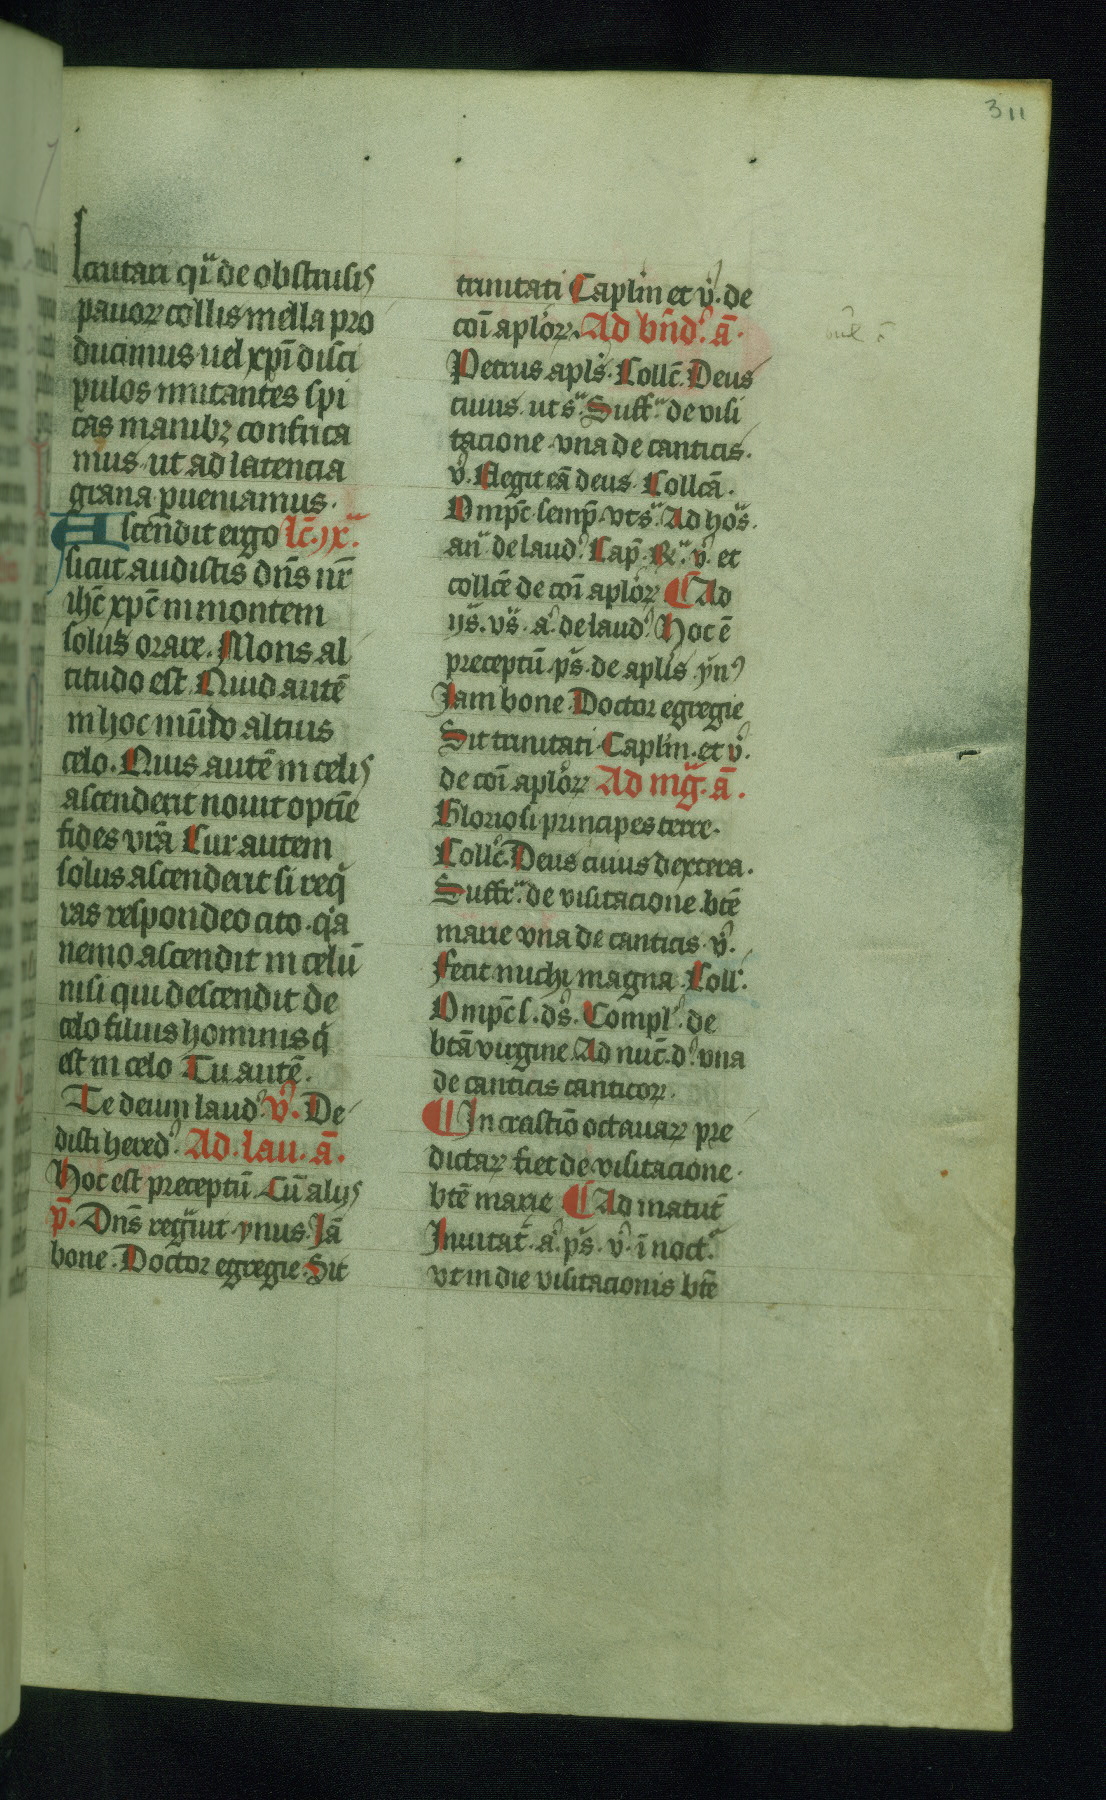 311
scrutari qͥ de obstrusis
pauoꝝ collis mella pro
ducimus uel xp̄i disci
pulos imitantes spi
cas manibꝫ confrica
mus ut ad latencia
grana pueniamus.
Ascendit ergo lc̄. ix.ᵃ
sicut audistis dn̄s nr̄
ih̄c xp̄c in montem
solus orare. Mons al
titudo est. Quid autē
in hoc mūdo altius
celo. Quis autē in celis
ascenderit nouit optīe
fides vrā Cur autem
solus ascenderit si reqͥ
ras respondeo cito. qͣa
nemo ascendit in celū
nisi qui descendit de
celo filius hominis qͥ
est in celo Tu autē.
Te deum laud᾽ v᾽. De
disti hered᾽. Ad. lau. ā.
Hoc est preceptū. Cū alijs
p̄. Dn̄s reg᾽uit ynus. Jā
bone. Doctor egregie. Sit
trinitati Caplm̄ et v᾽. de
coī aploꝝ. Ad bn̄d᾽. ā.
Petrus apls̄. Collc̄. Deus
cuius. ut sᵃ. Suffᵃ. de visi
tacione. vna de canticis.
v᾽. Elegit eā deus. Collcā.
Omp̄c semp̄. vt sᵃ. Ad hōs.
anᵃ de laud᾽. Cap̄. Rᵃ. v᾽. et
collcē de coī aploꝝ Ad
ijs̄. vs̄. a᾽. de laud᾽. Hoc ē
preceptū. ps̄. de aplis yn᾽
Jam bone. Doctor egregie
Sit trinitati. Caplm̄. et v᾽.
de coī aploꝝ Ad mḡ. ā.
Gloriosi principes terre.
Collc̄. Deus cuius dextera.
Suffrᵃ. de visitacione. btē
marie vna de canticis. v᾽.
Fecit michi magna. Coll᾽.
Omp̄c s. ds̄. Compl᾽. de
btā virgine. Ad nuc̄. d᾽. vna
de canticis canticoꝝ.
In crastīo octauaꝝ pre
dictaꝝ fiet de visitacione.
btē marie Ad matut̄
Inuitat̄. a᾽. ps̄. v᾽. ī noct᾽.
vt in die visitacionis btē